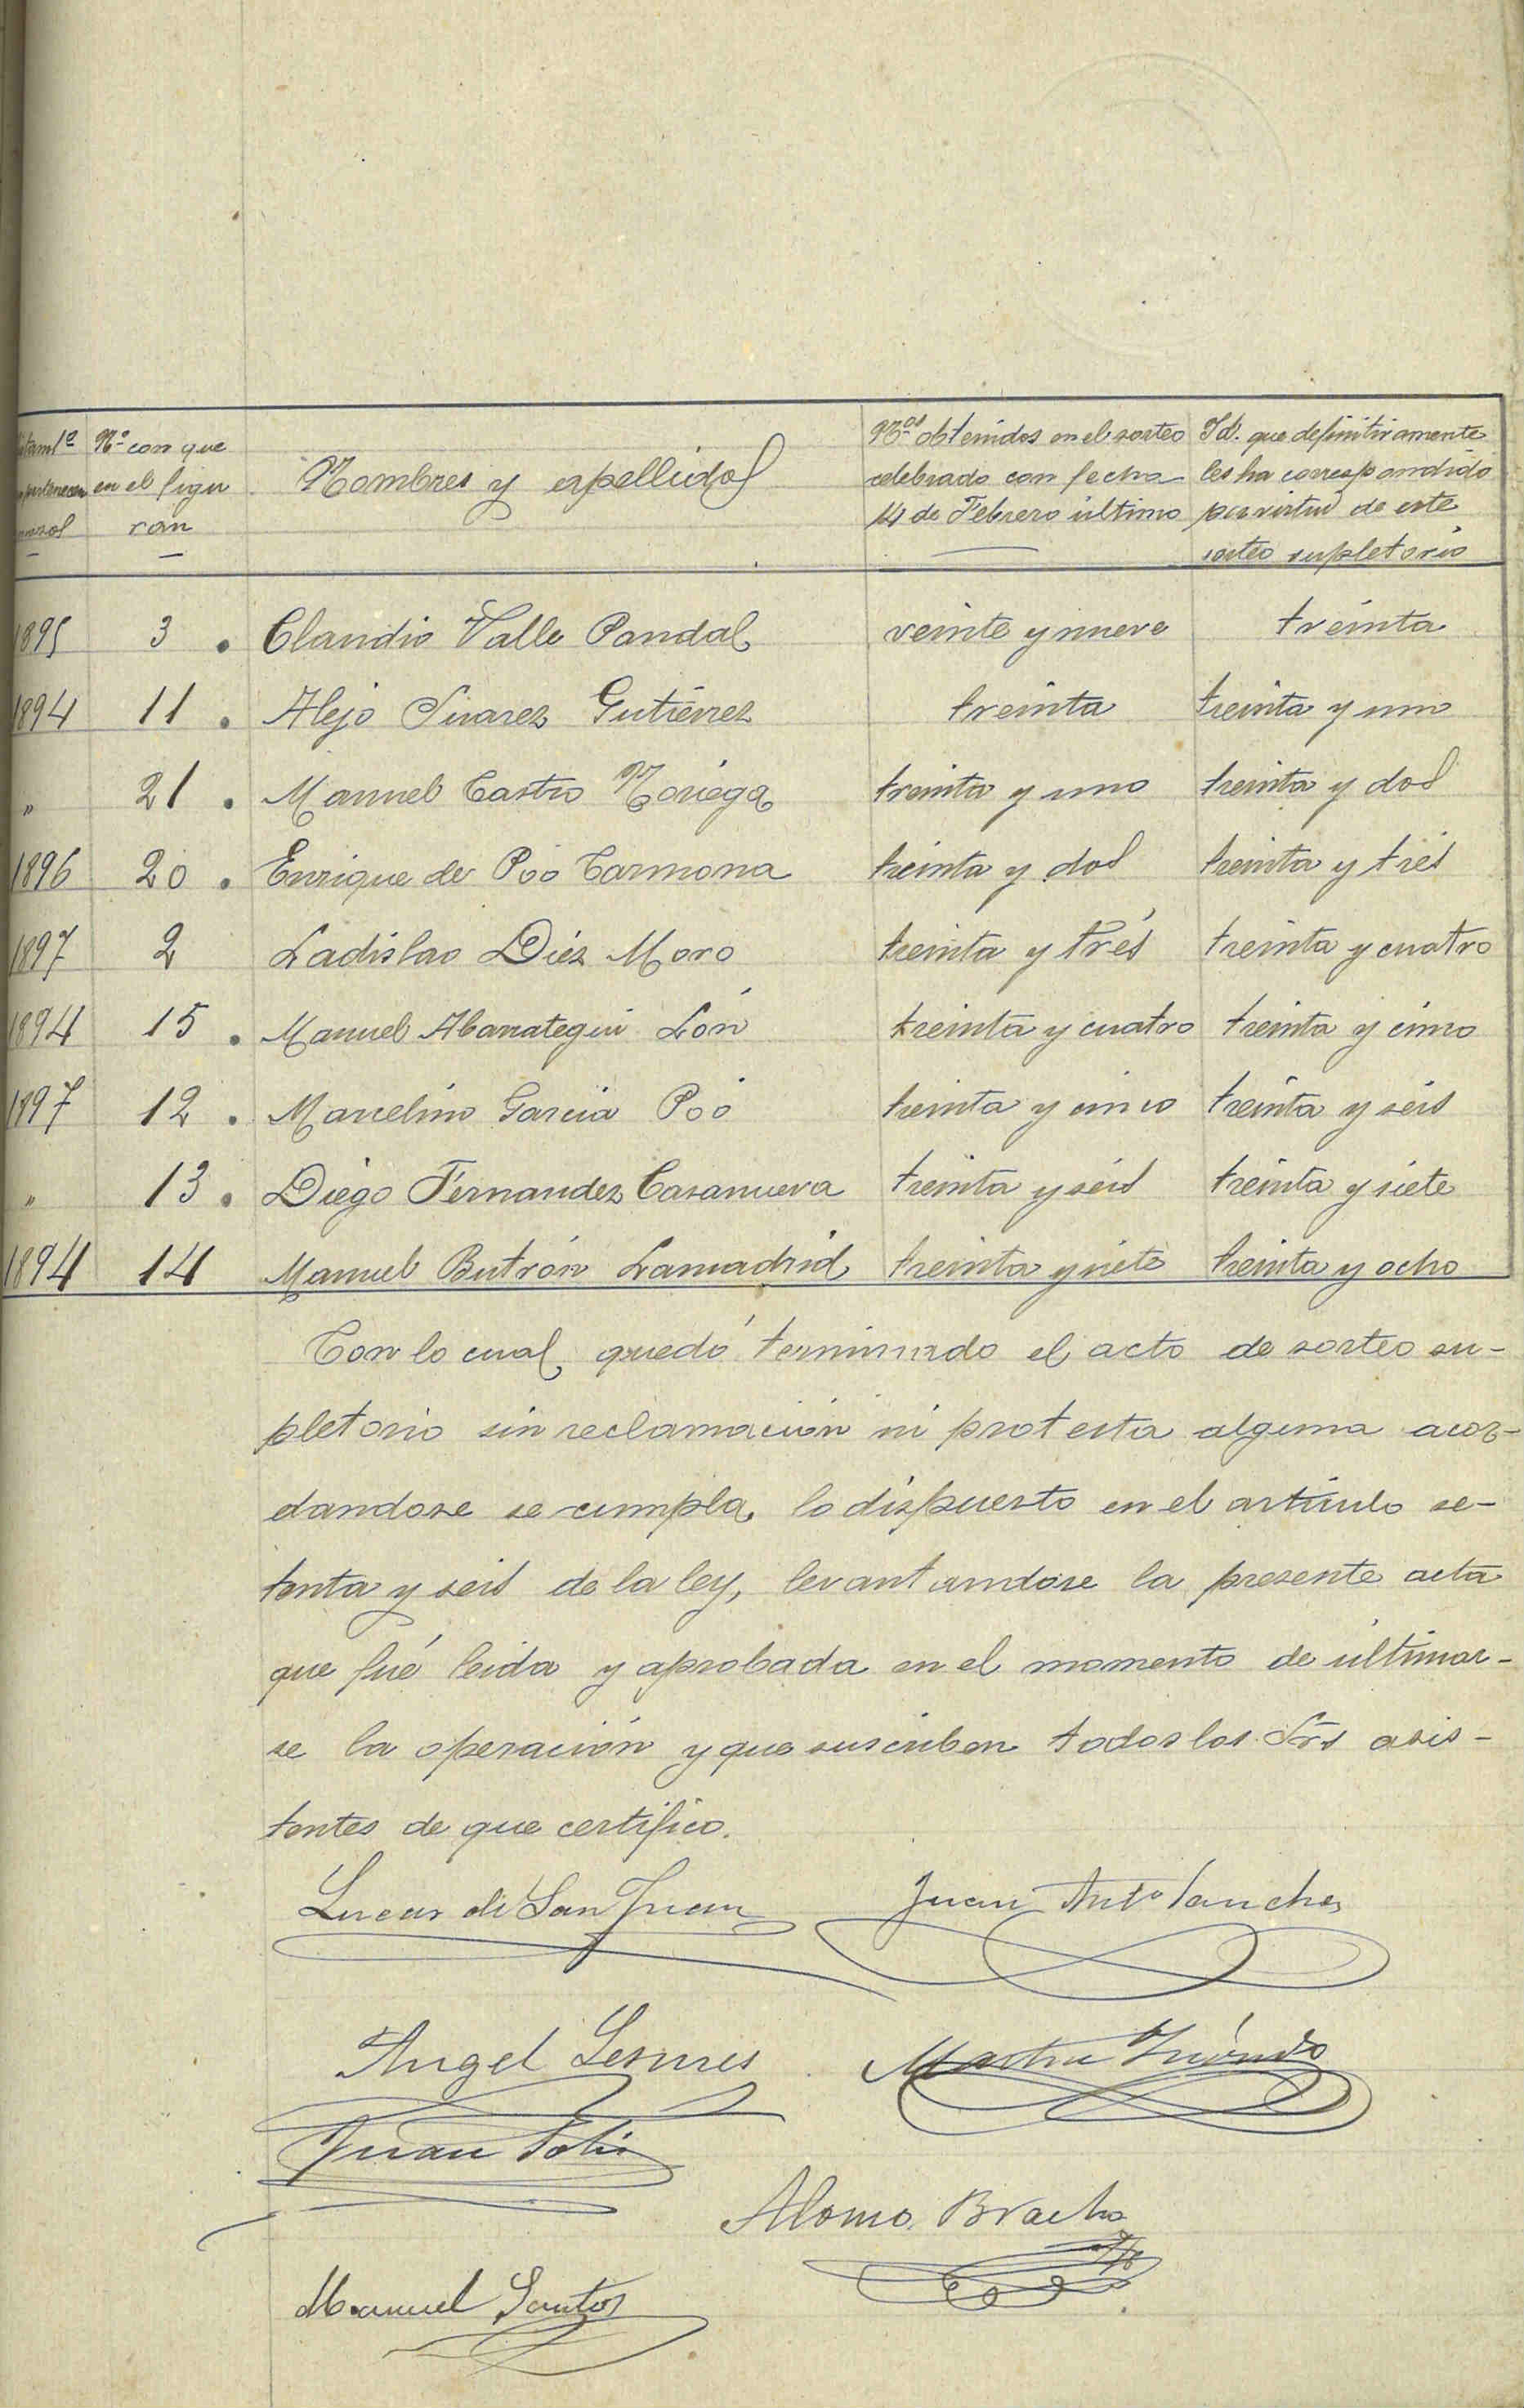 Nº con que
en el figu
ran
Nombres y apellidos
Nos obtenidos en el sorteo
celebrado con fecha
14 de Febrero último
Id. que definitivamente
les ha correspondido
por virtud de este
sorteo supletorio
1895 3 . Claudio Valle Pandal veinte y nueve treinta
1894 11 . Alejo Suarez Gutiérrez treinta treinta y uno
" 21 . Manuel Castro Noriega treinta y uno treinta y dos
1896 20 . Enrique de Poo Carmona treinta y dos treinta y tres
1897 2 Ladislao Diéz Moro treinta y trés treinta y cuatro
1894 15 . Manuel Abarrategui Lón treinta y cuatro treinta y cinco
1897 12 . Marcelino Garcia Poó treinta y cinco treinta y seis
" 13 . Diego Fernandez Casanueva treinta y seis treinta y siete
1894 14 Manuel Butrón Lamadrid treinta y siete treinta y ocho
Con lo cual quedó terminado el acto de sorteo su-
pletorio sin reclamación ni protesta alguna acor-
dandose se cumpla lo dispuesto en el artículo se-
tenta y seis de la ley, levantandose la presente acta
que fué leida y aprobada en el momento de ultimar-
se la operación y que suscriben todos los Srs asis-
tentes de que certifico.
Lucas de San Juan Juan Anto Sanchez
Angel Lesmes Martin
Juan
Alonso Bracho
Manuel Santos